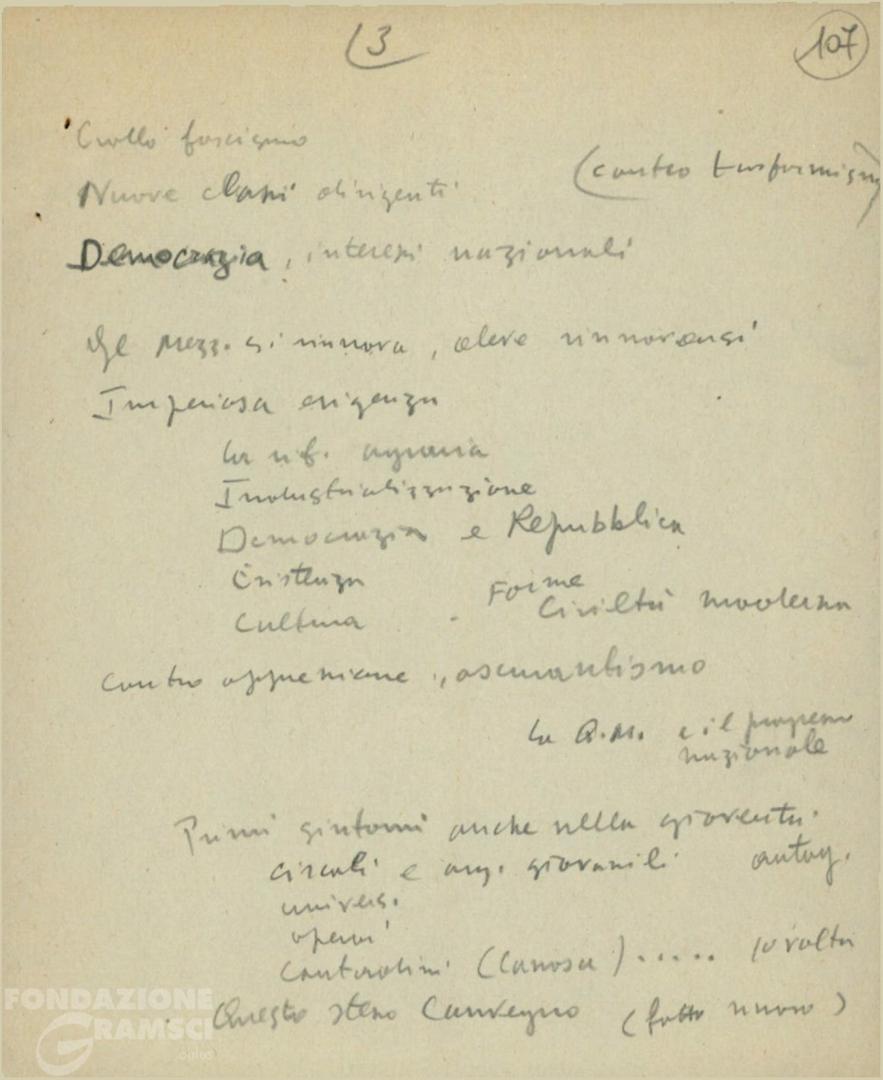 3
107
Crollo fascismo
Nuove classi dirigenti (contro trasformismo)
Democrazia, interessi nazionali
Il mezz. si rinnova, deve rinnovarsi
Imperiosa esigenza
la rif. agraria
Industrializzazione
Democrazia e Repubblica
Esistenza Forme
Cultura Civiltà moderna
contro oppressione, oscurantismo
la Q.M. e il progresso
nazionale
Primi sintomi anche nella gioventù.
circoli e org. giovanili
univers.
operai
Contadini (Canosa) ..... rivolta
Questo stesso Convegno (fatto nuovo)
FONDAZIONE
GRAMSCI